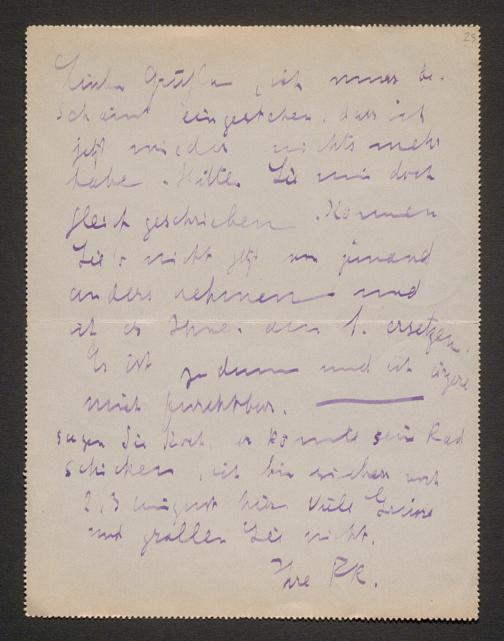 Lieber Grüssla, ich muss be-
schämt eingestehen, dass ich
jetzt wieder nichts mehr
habe. Hätten Sie mir doch
gleich geschrieben. Können
Sie's nicht jetzt von jemand
anders nehmen und
ich es Ihnen dann 1. ersetzen.
Es ist zu dumm und ich ärgere
mich furchtbar.
sagen Sie er könnte sein Rad
schicken, ich bin sicher
2, 3 August hier. Viele Grüsse
und grollen Sie nicht.
Ihre FR.